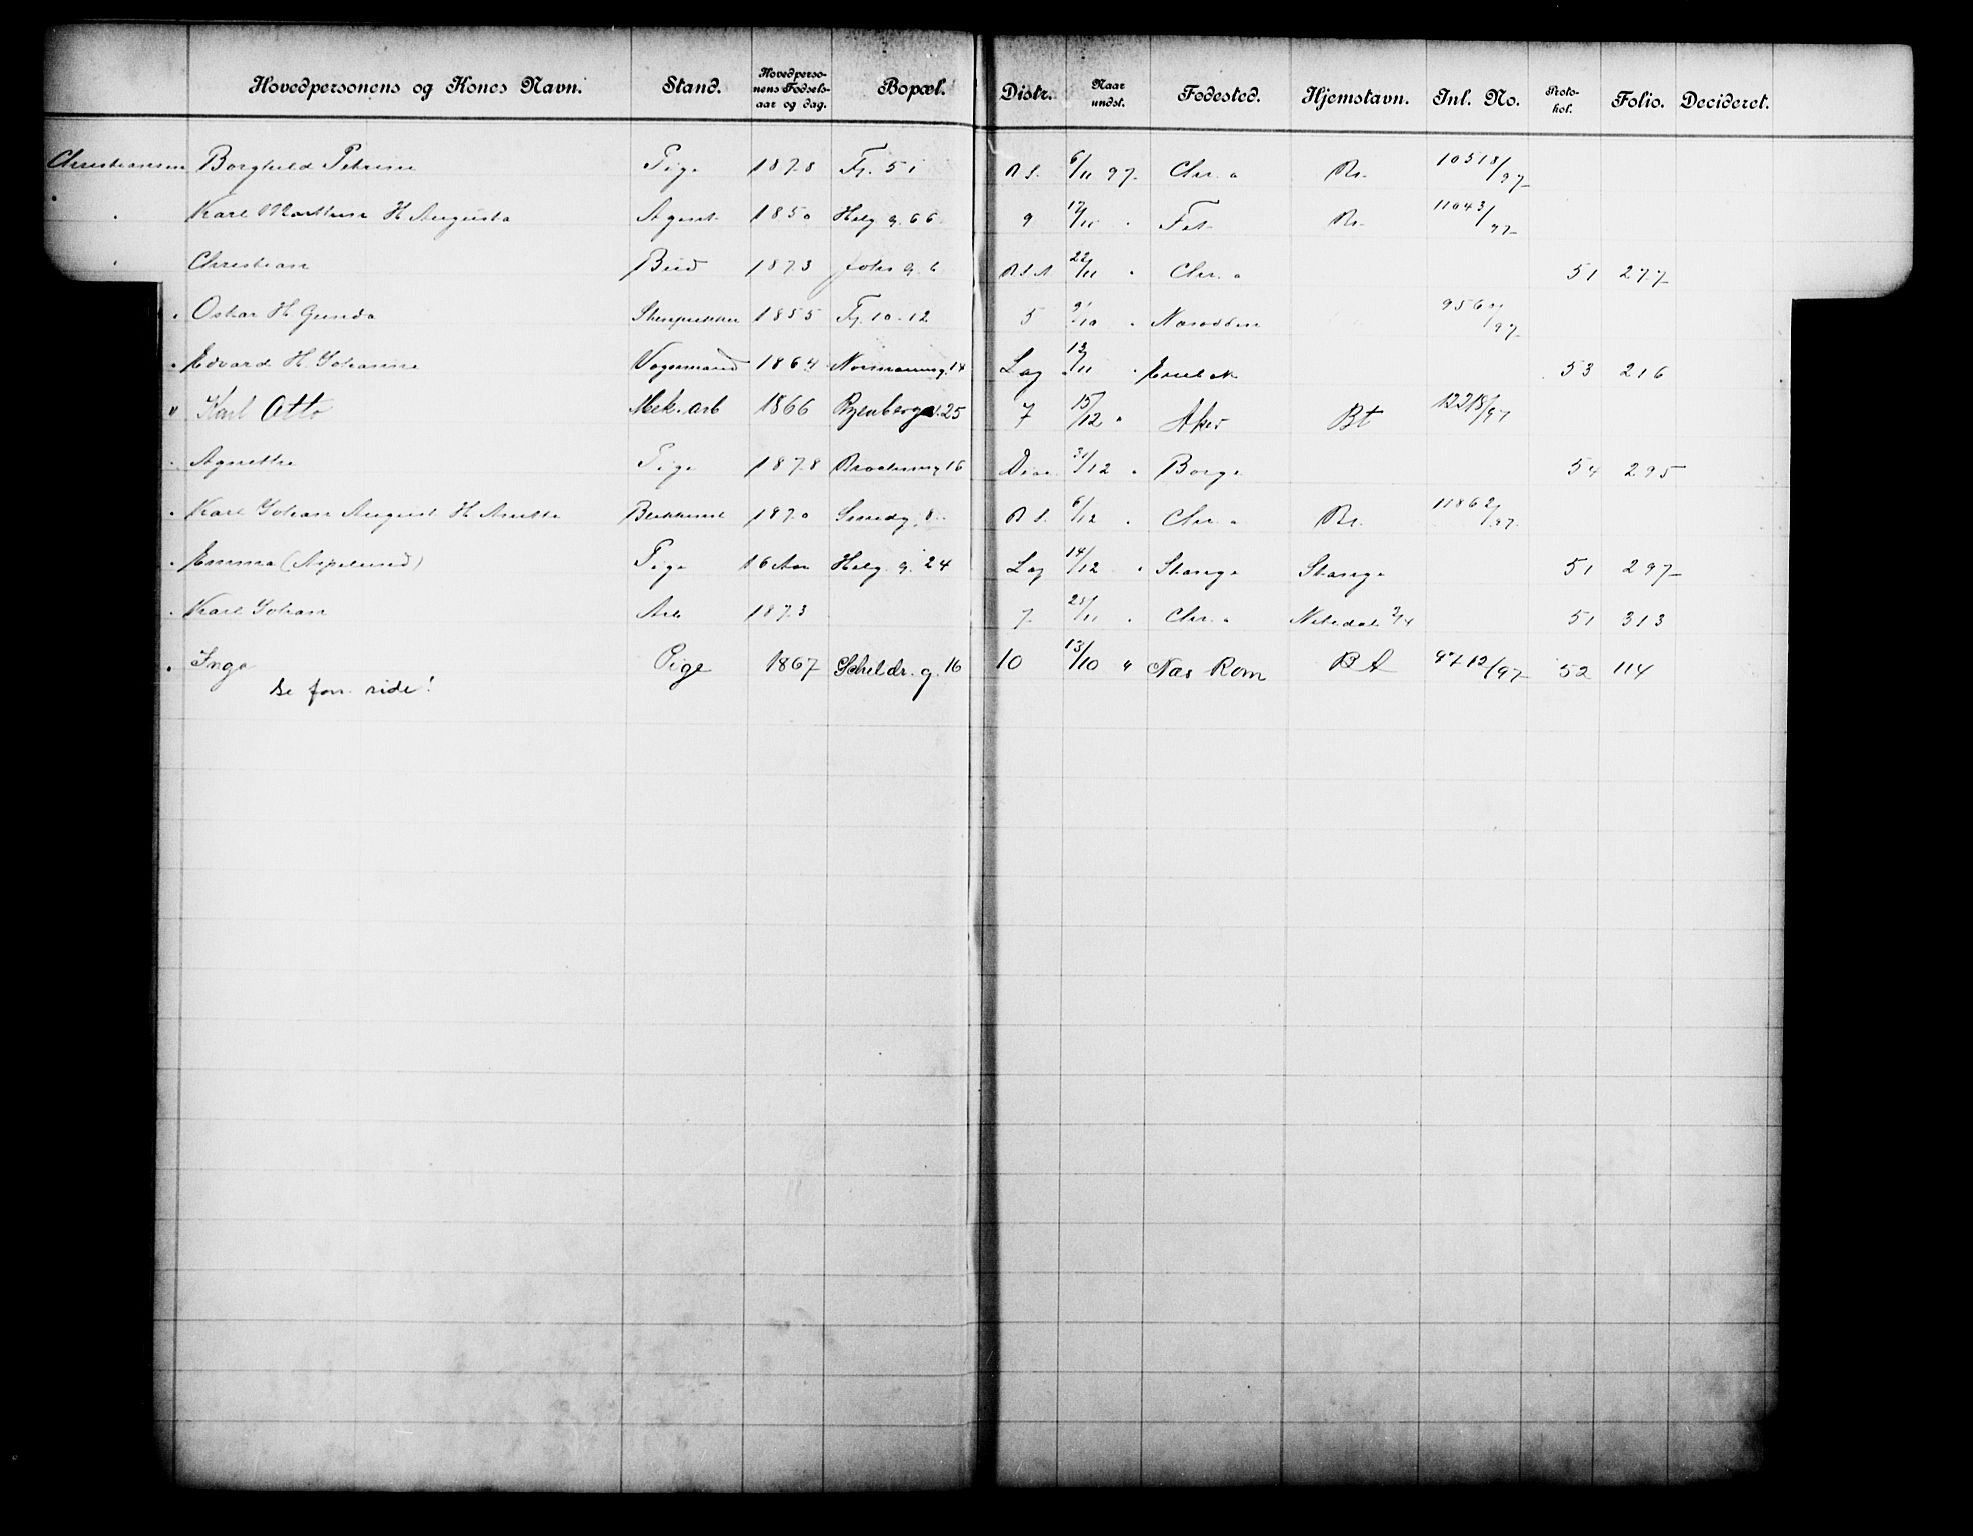 Hovedpersonens og Kones Navn. Stand. Hovedpersonens Fødselsaar og dag. Bopæl. Distr. Naar undst. Fødested. Hjemstavn. Inl. No. Protokol. Folio. Decideret.
Christiansen Borghild Petrine Pige 1878 Fj. 51 R S. 6/11 97 Chr.a Br. 10518/97
" Karl Martinus H Augusta Agent 1850 Helg g. 66 9 17/11 " Fet Br. 11043/97
" Christian Bud 1873 Johs g. 6 22/11 " Chr.a 51 277
" Oskar H Gunda 1855 Fj. 10-12 5 9/10 " Næsodden 9567/97
" Edvard H. Johanne Vognmand 1864 Normanng. 14 Lag 12/11 " 53 216
" Karl Otto Mek. arb 1866 Ryenberg 25 7 15/12 " Aker Bt 12218/97
" Agnethe Pige 1878 16 31/12 " Borge 54 295
" Karl Johan August H Anette 1870 Smedg. 8 R S. 6/12 " Chr.a Br. 11862/97
" Emma (Aspelund) Pige 16 Aar Helg. g. 24 Lag 14/12 " Stange Stange 51 297
" Karl Johan Arb 1873 7 25/11 " Chr.a Nitedal 51 313
" Inga Pige 1867 Scheldr. g. 16 10 13/10 " Næs Rom B A 9712/97 52 114
Se forr. side!